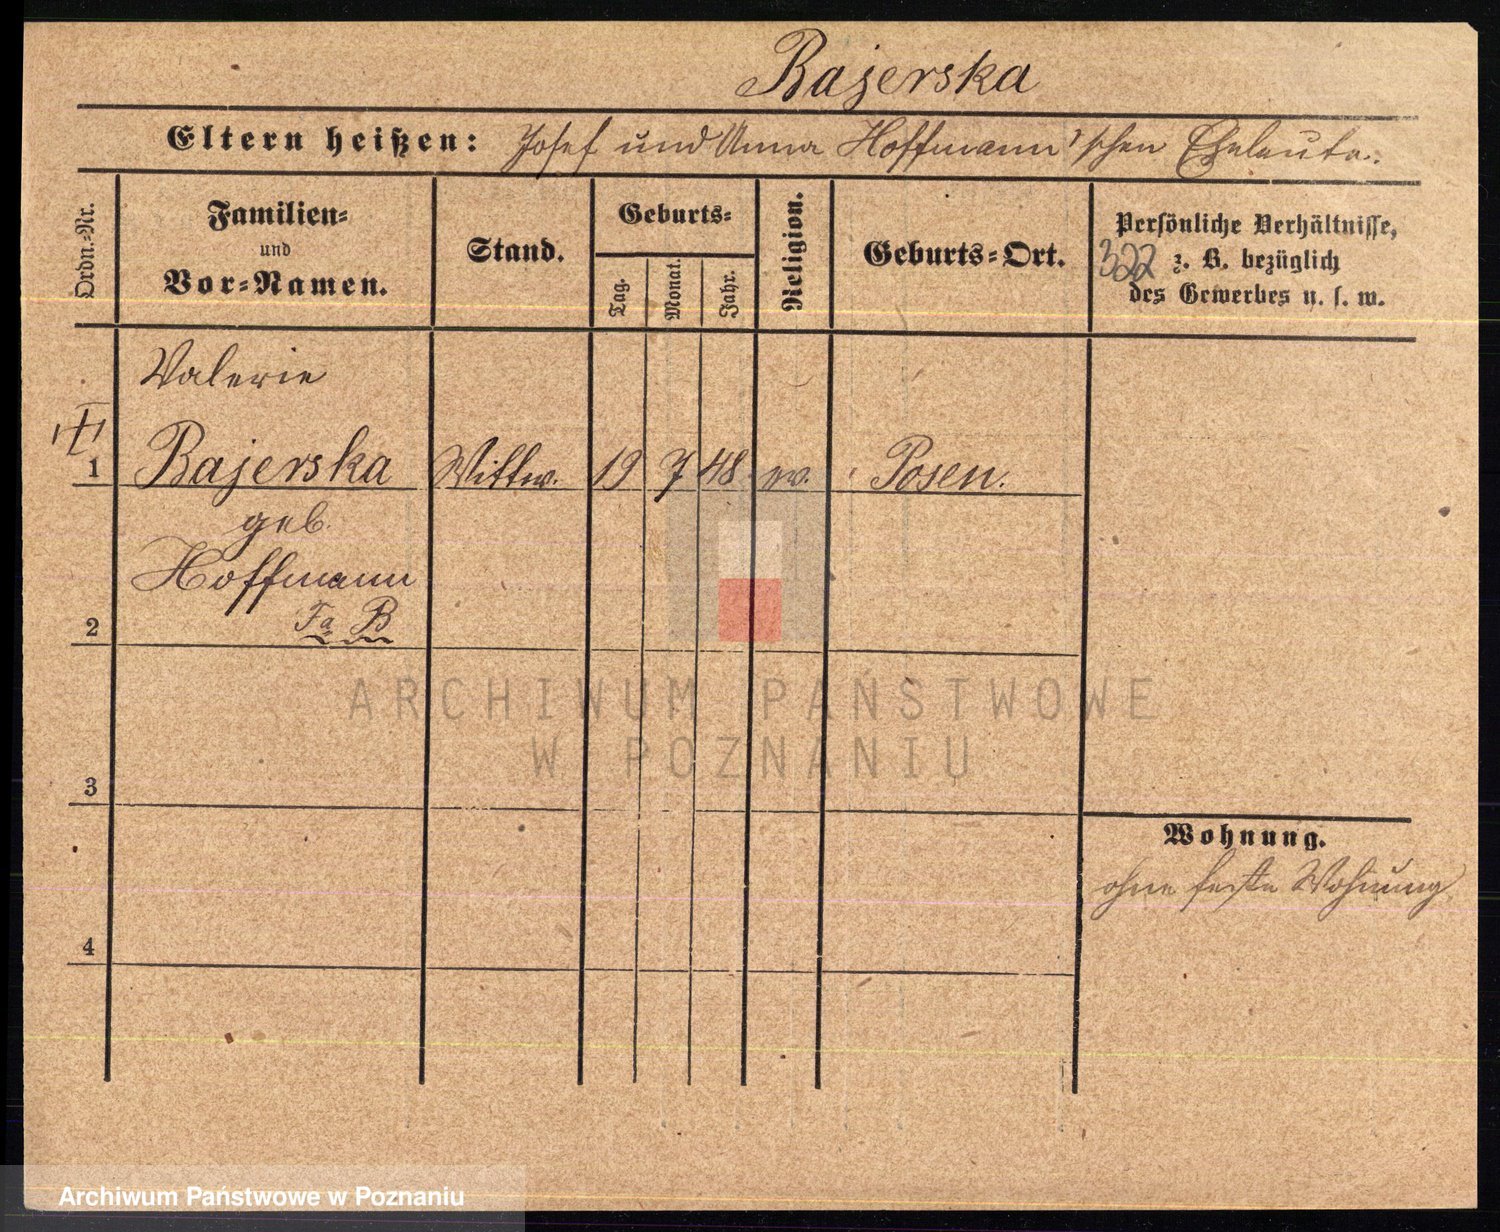 Bajerska
Eltern heißen: Josef und Anna Hoffmann'schen Eheleute.
Ordn.-Nr.
Familien-
und
Vor-Namen.
Stand.
Geburts-
Tag.
Monat.
Jahr.
Religion.
Geburts-Ort.
Persönliche Verhältnisse,
322 z. B. bezüglich
des Gewerbes u. s. w.
Valerie
1 Bajerska Wittw. 19 7 48 Posen.
geb.
Hoffmann
Fa B
2
ARCHIWUM PAŃSTWOWE
W POZNANIU
3
Wohnung.
ohne feste Wohnung
4
Archiwum Państwowe w Poznaniu